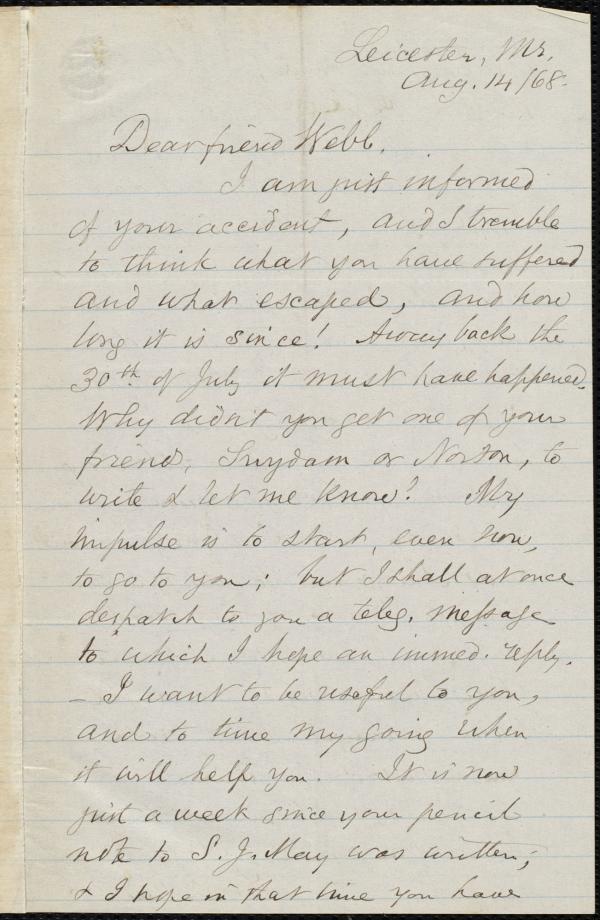 Leicester, Ms.
Aug. 14/68.
Dear friend Webb,
I am just informed
of your accident, and I tremble
to think what you have suffered
and what escaped, and how
long it is since! Away back the
30th. of July it must have happened.
Why didn't you get one of your
friends, Suydam or Norton, to
write & let me know? My
impulse is to start, even now,
to go to you; but I shall at once
despatch to you a teleg. message
to which I hope an immed. reply.
- I want to be useful to you,
and to time my going when
it will help you. It is now
just a week since your pencil
note to S. J. May was written;
& I hope in that time you have